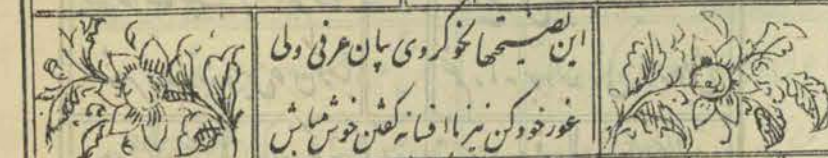 این نصیحتها نخو کردی بیان عرفی ولی
غور خود کن نیز با افسانه گفتن خوش مباش